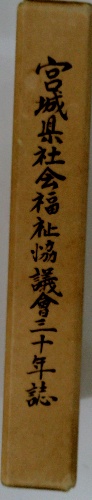 宮城県社会福祉協議會三十年誌